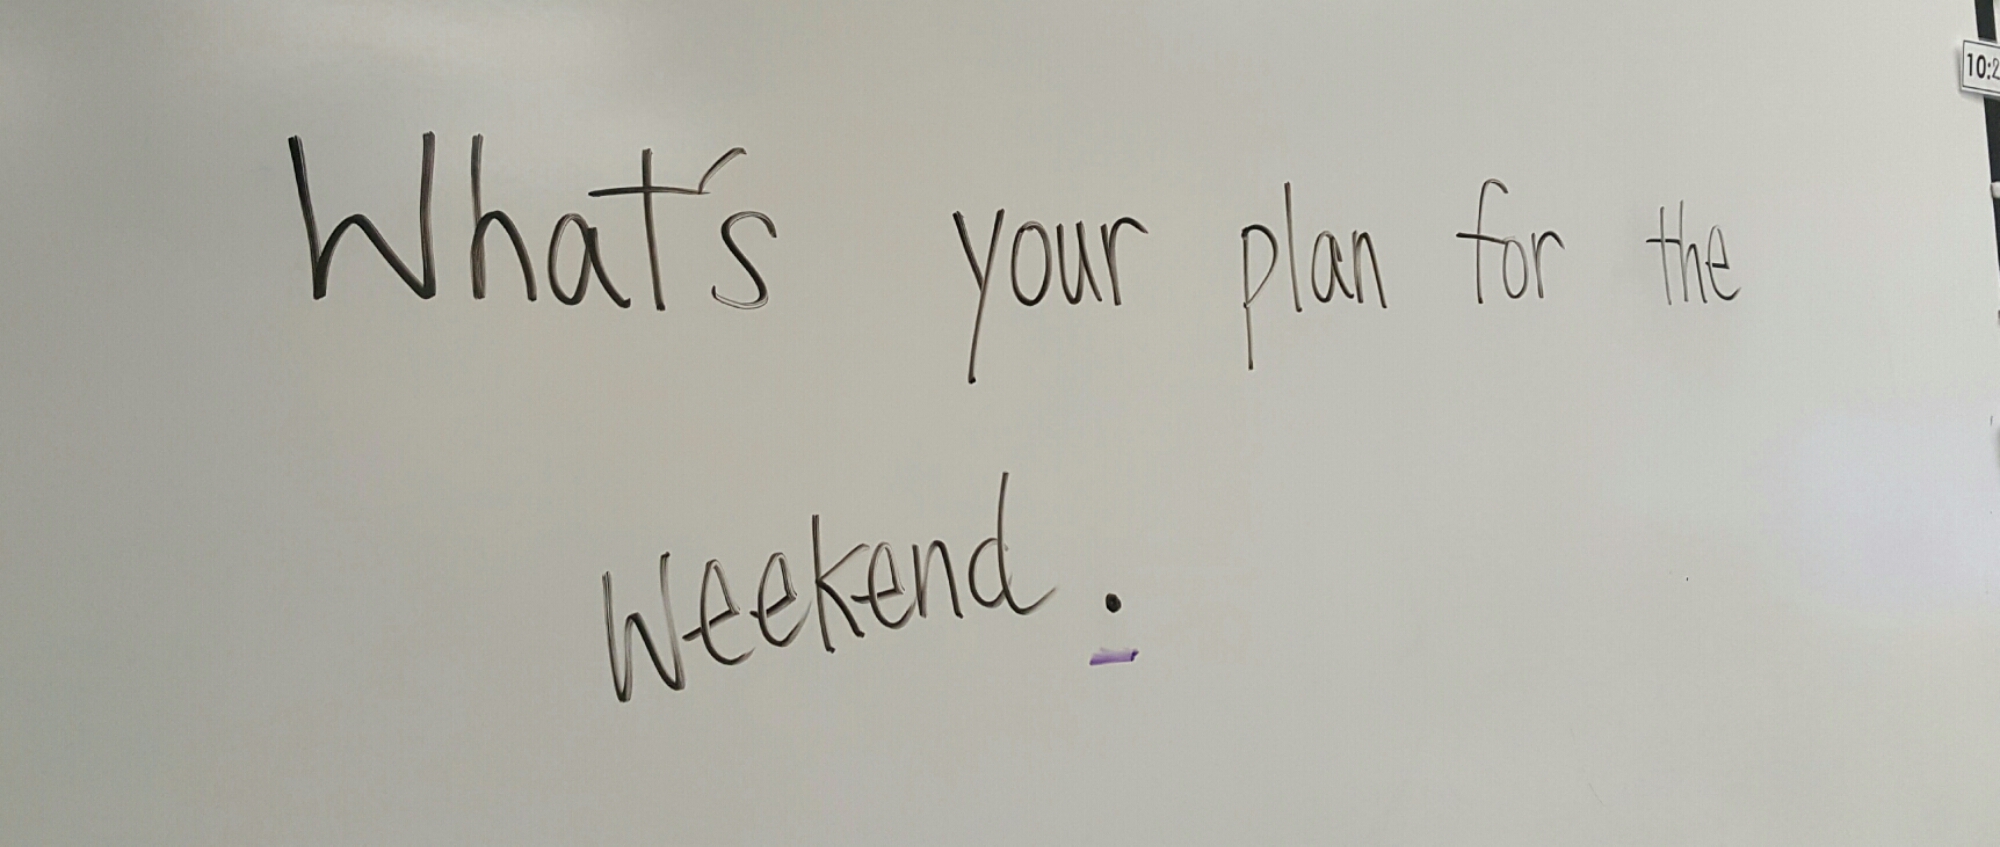 What's your plan for the
weekend.
10:2